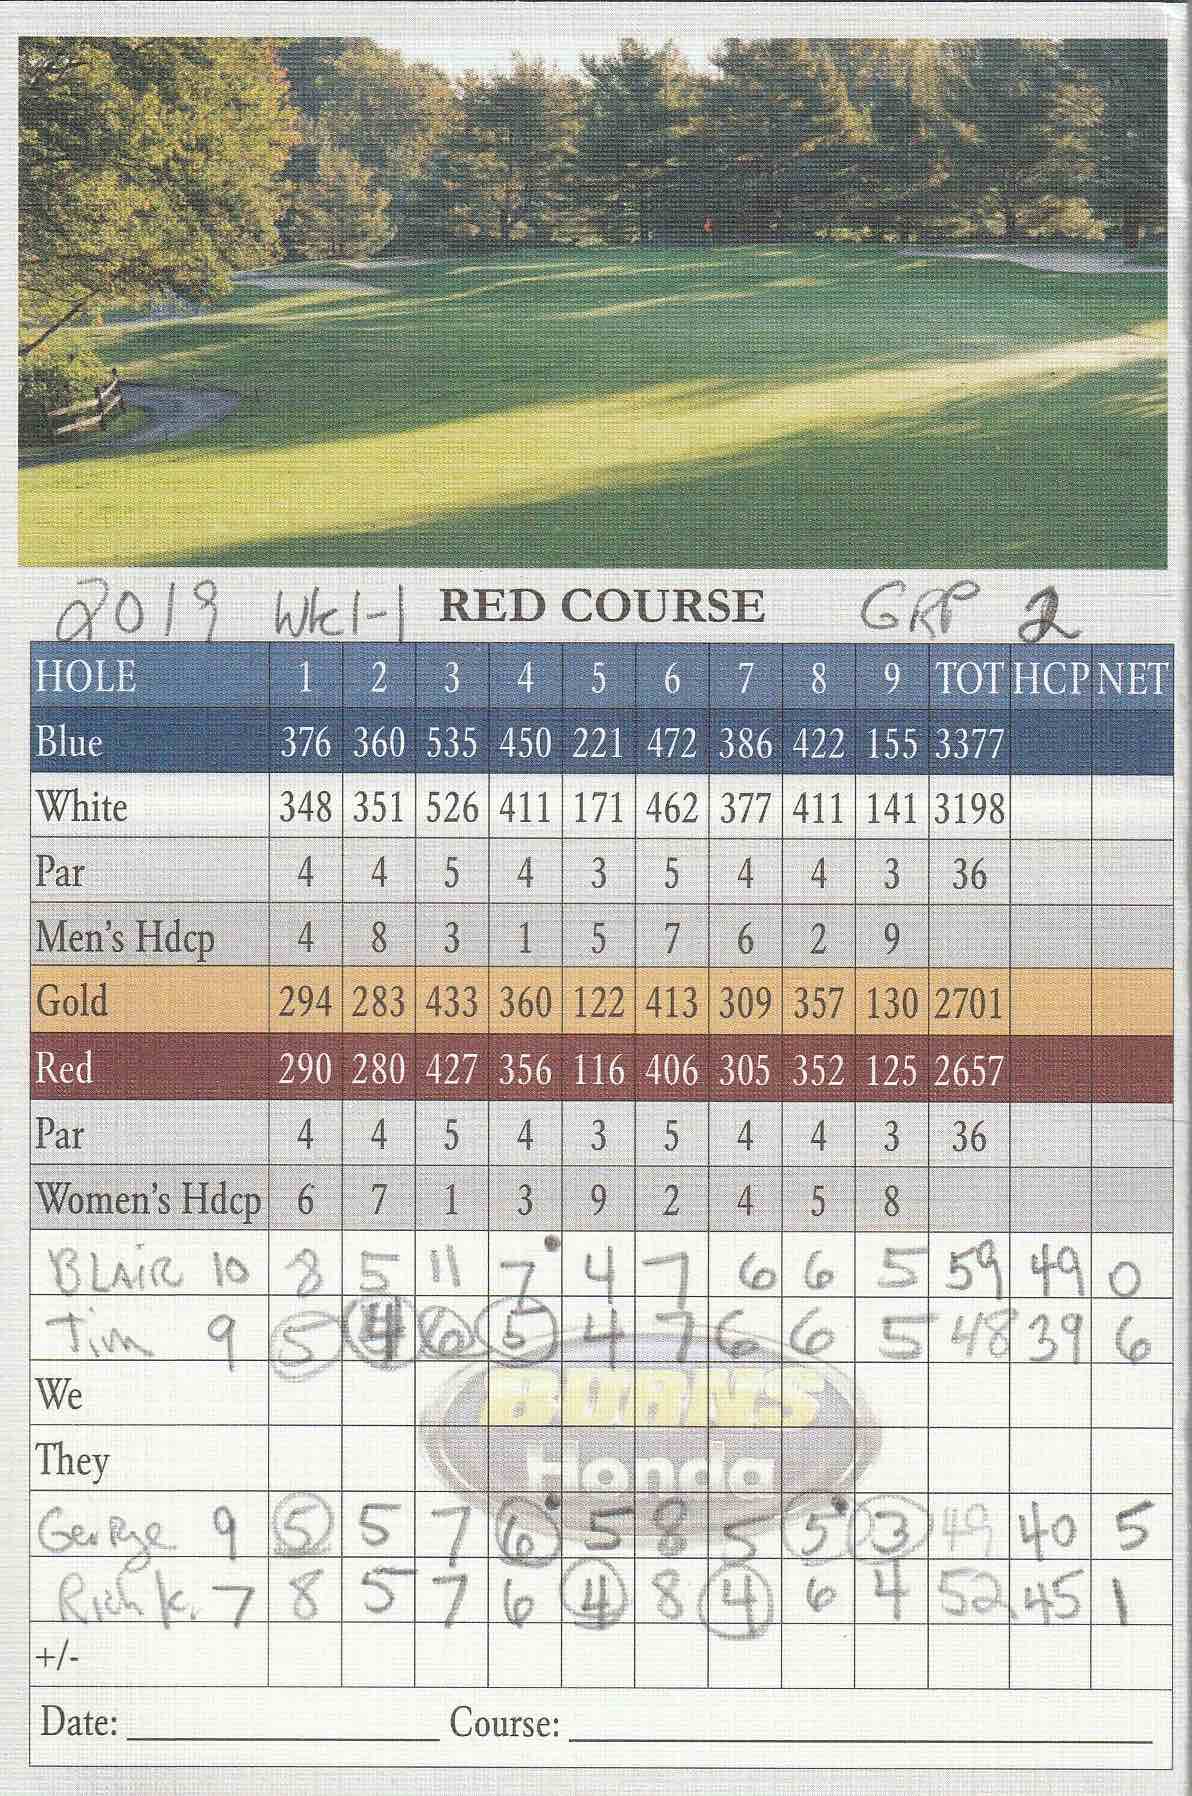 2019 Wk1-1 RED COURSE GRP 2
HOLE 1 2 3 4 5 6 7 8 9 TOT HCP NET
Blue 376 360 535 450 221 472 386 422 155 3377
White 348 351 526 411 171 462 377 411 141 3198
Par 4 4 5 4 3 5 4 4 3 36
Men's Hdcp 4 8 3 1 5 7 6 2 9
Gold 294 283 433 360 122 413 309 357 130 2701
Red 290 280 427 356 116 406 305 352 125 2657
Par 4 4 5 4 3 5 4 4 3 36
Women's Hdcp 6 7 1 3 9 2 4 5 8
BLAIR 10 8 5 11 7 4 7 6 6 5 59 49 0
Tim 9 5 4 6 5 4 7 6 6 5 48 39 6
We
BURNS
They
Honda
George 9 5 5 7 6 5 8 5 5 3 49 40 5
Rich K. 7 8 5 7 6 4 8 4 6 4 52 45 1
+/-
Date: Course: